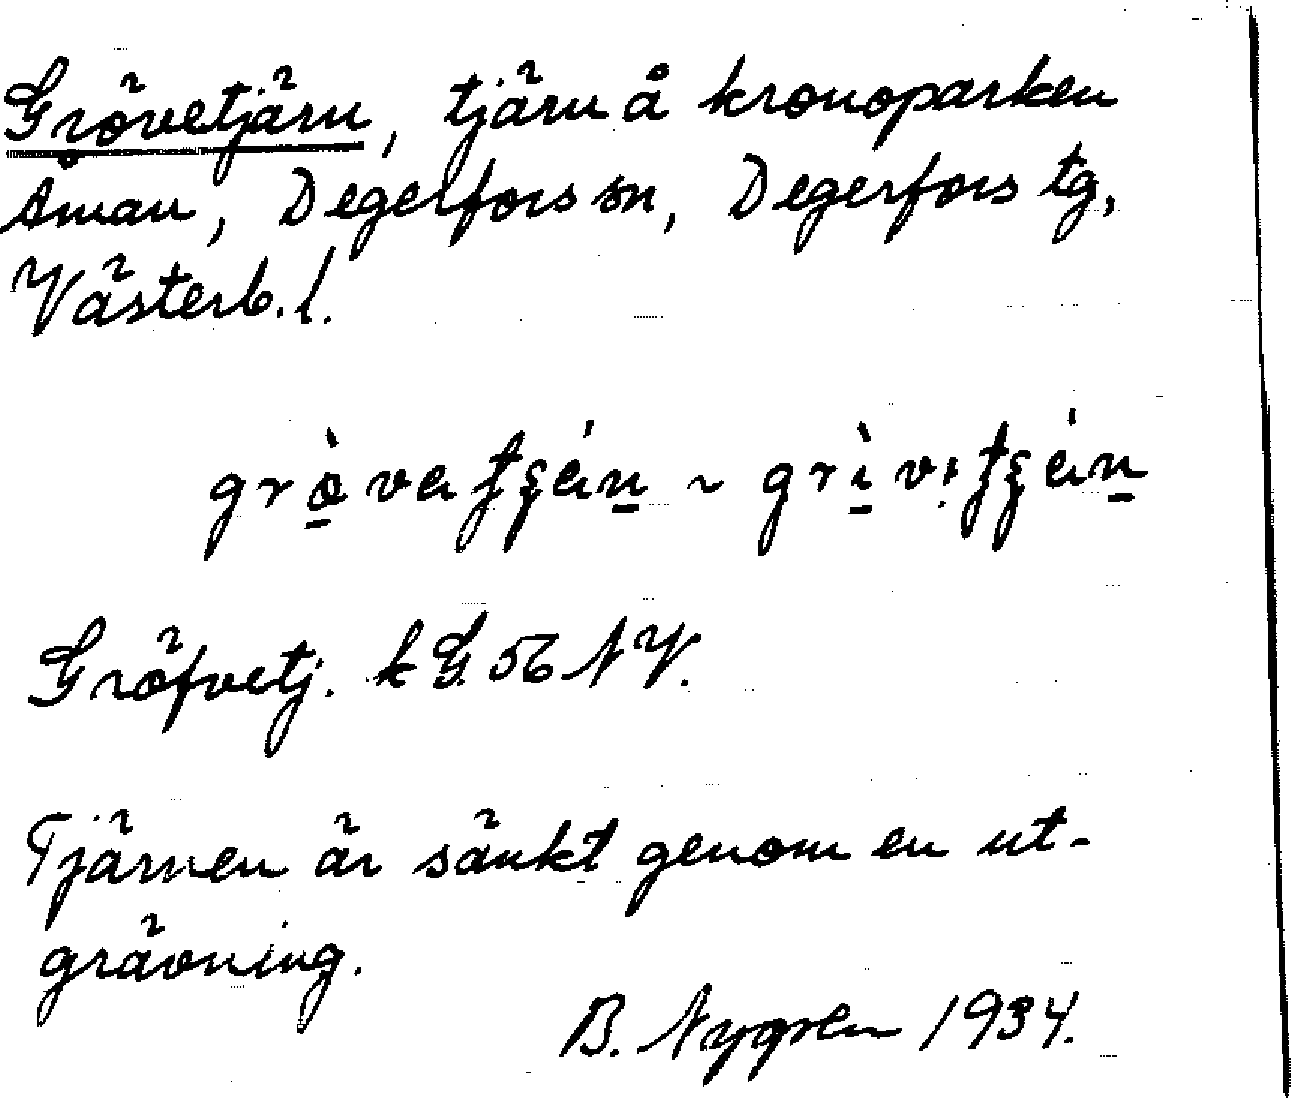 Grövetjärn, tjärn å kronoparken
Åman, Degerfors sn, Degerfors tg,
Västerb. l.
Gröfvetj. k G. 56 NV.
Tjärnen är sänkt genom en ut-
grävning.
B. Nygren 1934.